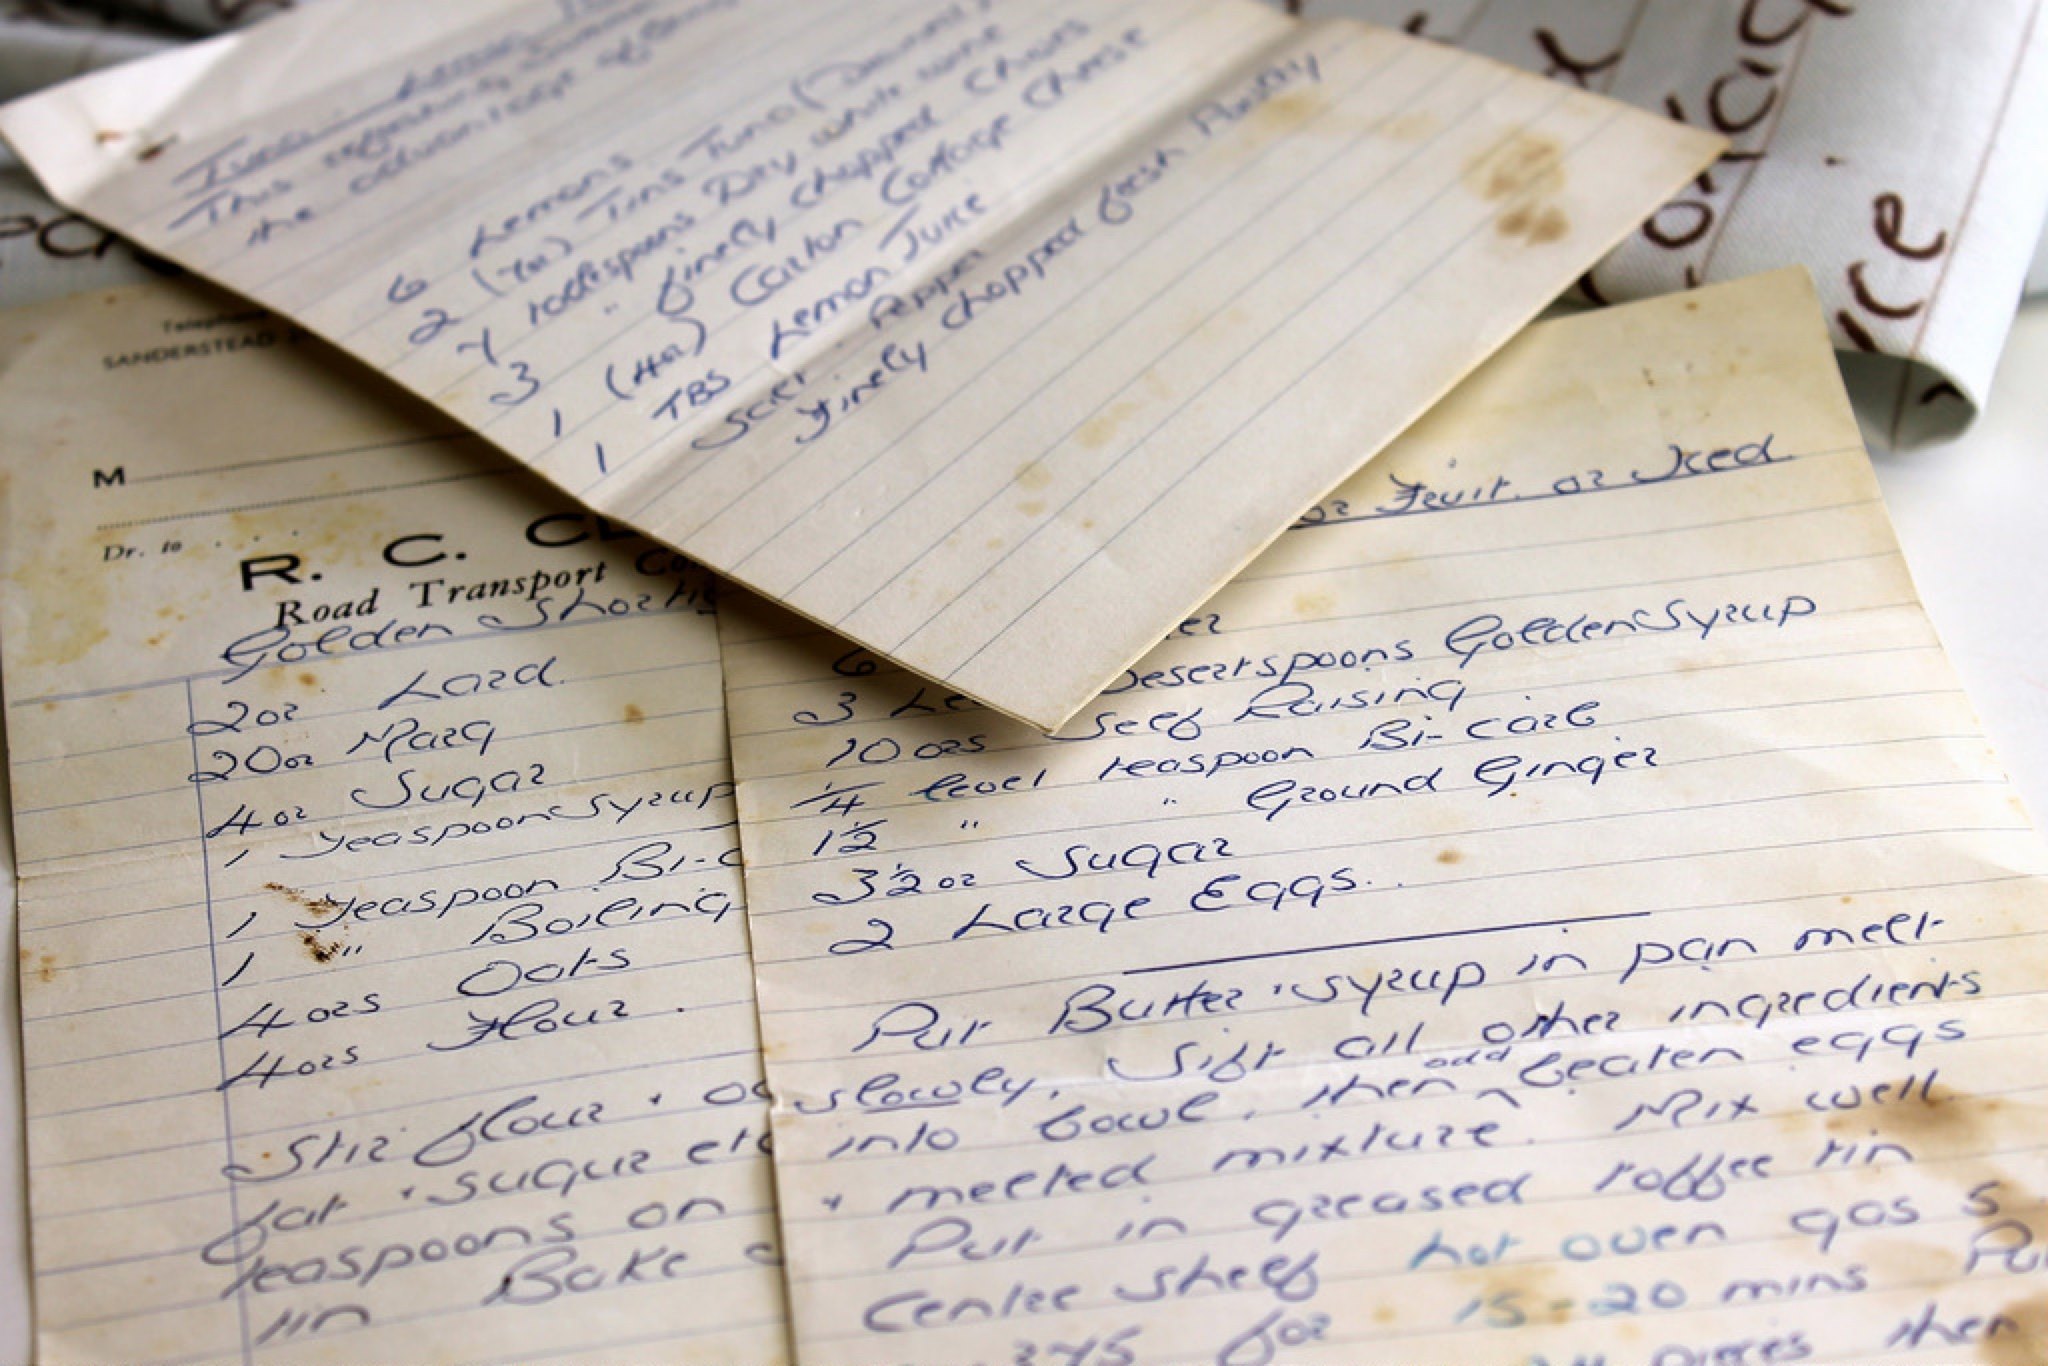 This refreshing
the advantage of
6 Lemons
2 (7oz) Tins Tuna (Drained)
4 tablespoons Dry white wine
3 " finely chopped Chives
1 (4oz) Carton Cottage Cheese
1 TBS Lemon Juice
Salt. Pepper
Finely chopped fresh Parsley
Telephone
SANDERSTEAD
M
Dr. to
R. C. CL
Road Transport Co
Golden Shortie
2oz Lard.
2oz Marg
4oz Sugar
1 Teaspoon Syrup
1 Teaspoon Bi-C
1 " Boiling
4ozs Oats
4ozs Flour.
Stir flour + oa
fat + sugar etc
teaspoons on
tin Bake
or Fruit. or Iced.
6
3 Le Desertspoons Golden Syrup
10 ozs Self Raising
1/4 level teaspoon Bi-carb
1 1/2 " " Ground Ginger
3 1/2 oz Sugar
2 Large Eggs.
Put Butter + syrup in pan melt
slowly. Sift all other ingredients
into bowl, then add beaten eggs
+ melted mixture. Mix well.
Put in greased toffee tin
Centre shelf hot oven gas 5
375 for 15-20 mins
pieces then